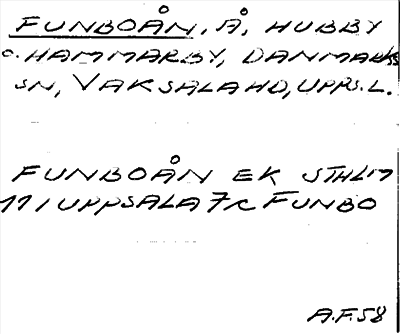 FUNBOÅN, Å, HUBBY
o. HAMMARBY, DANMARKS
SN, VAKSALA HD, UPPS. L.
FUNBOÅN EK STHLM
111 UPPSALA 7c FUNBO
A.F. 58